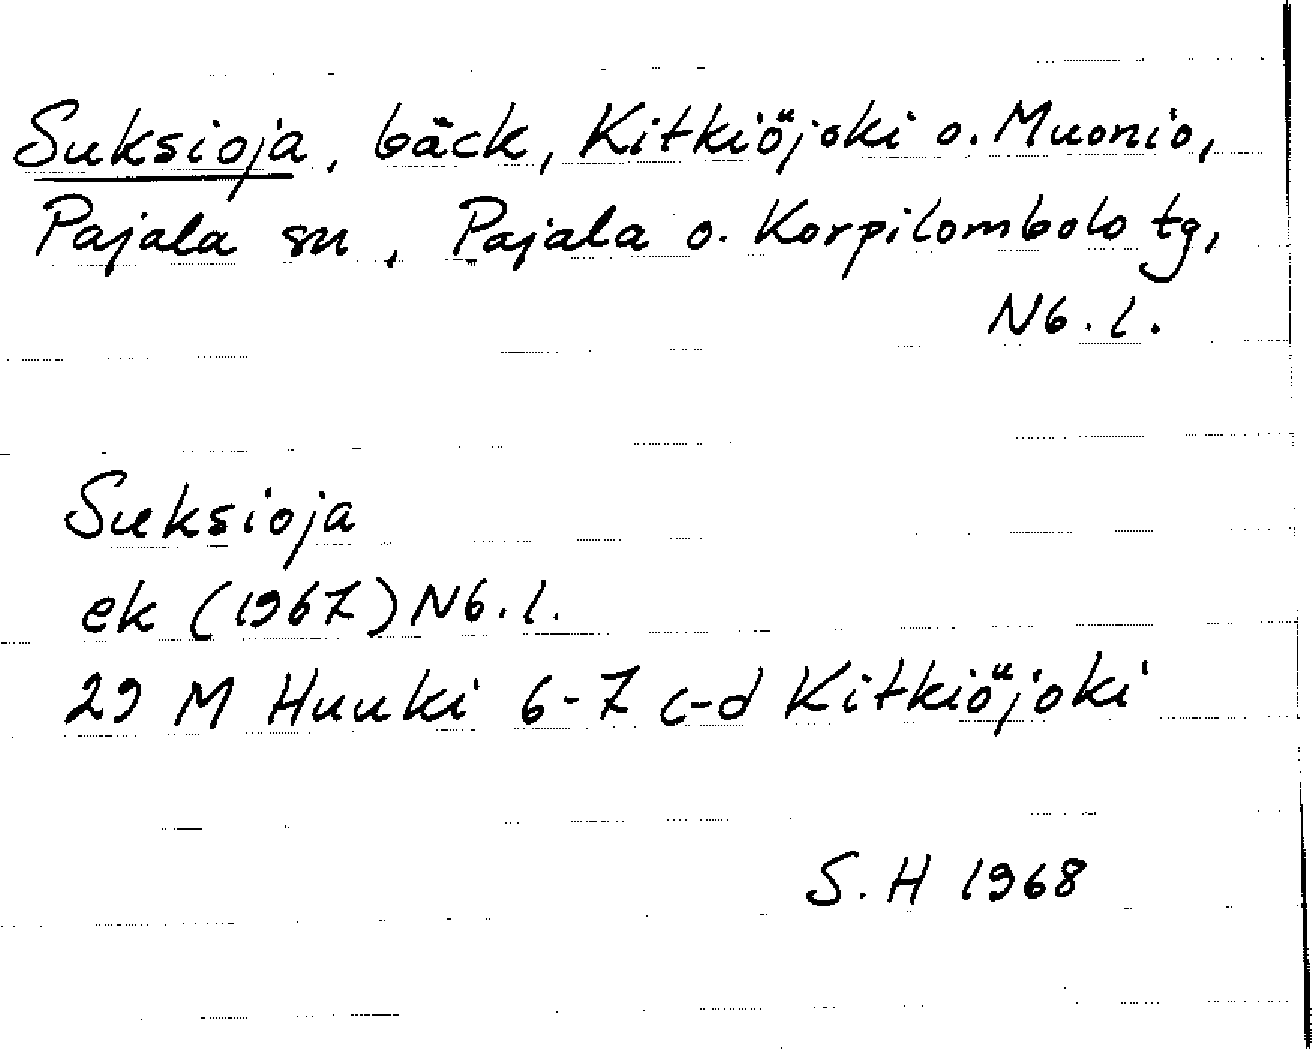 Suksioja, bäck, Kitkiöjoki o. Muonio,
Pajala sn, Pajala o. Korpilombolo tg,
Nb. l.
Suksioja
ek (1967) Nb. l.
29 M Huuki 6-7 c-d Kitkiöjoki
S. H 1968